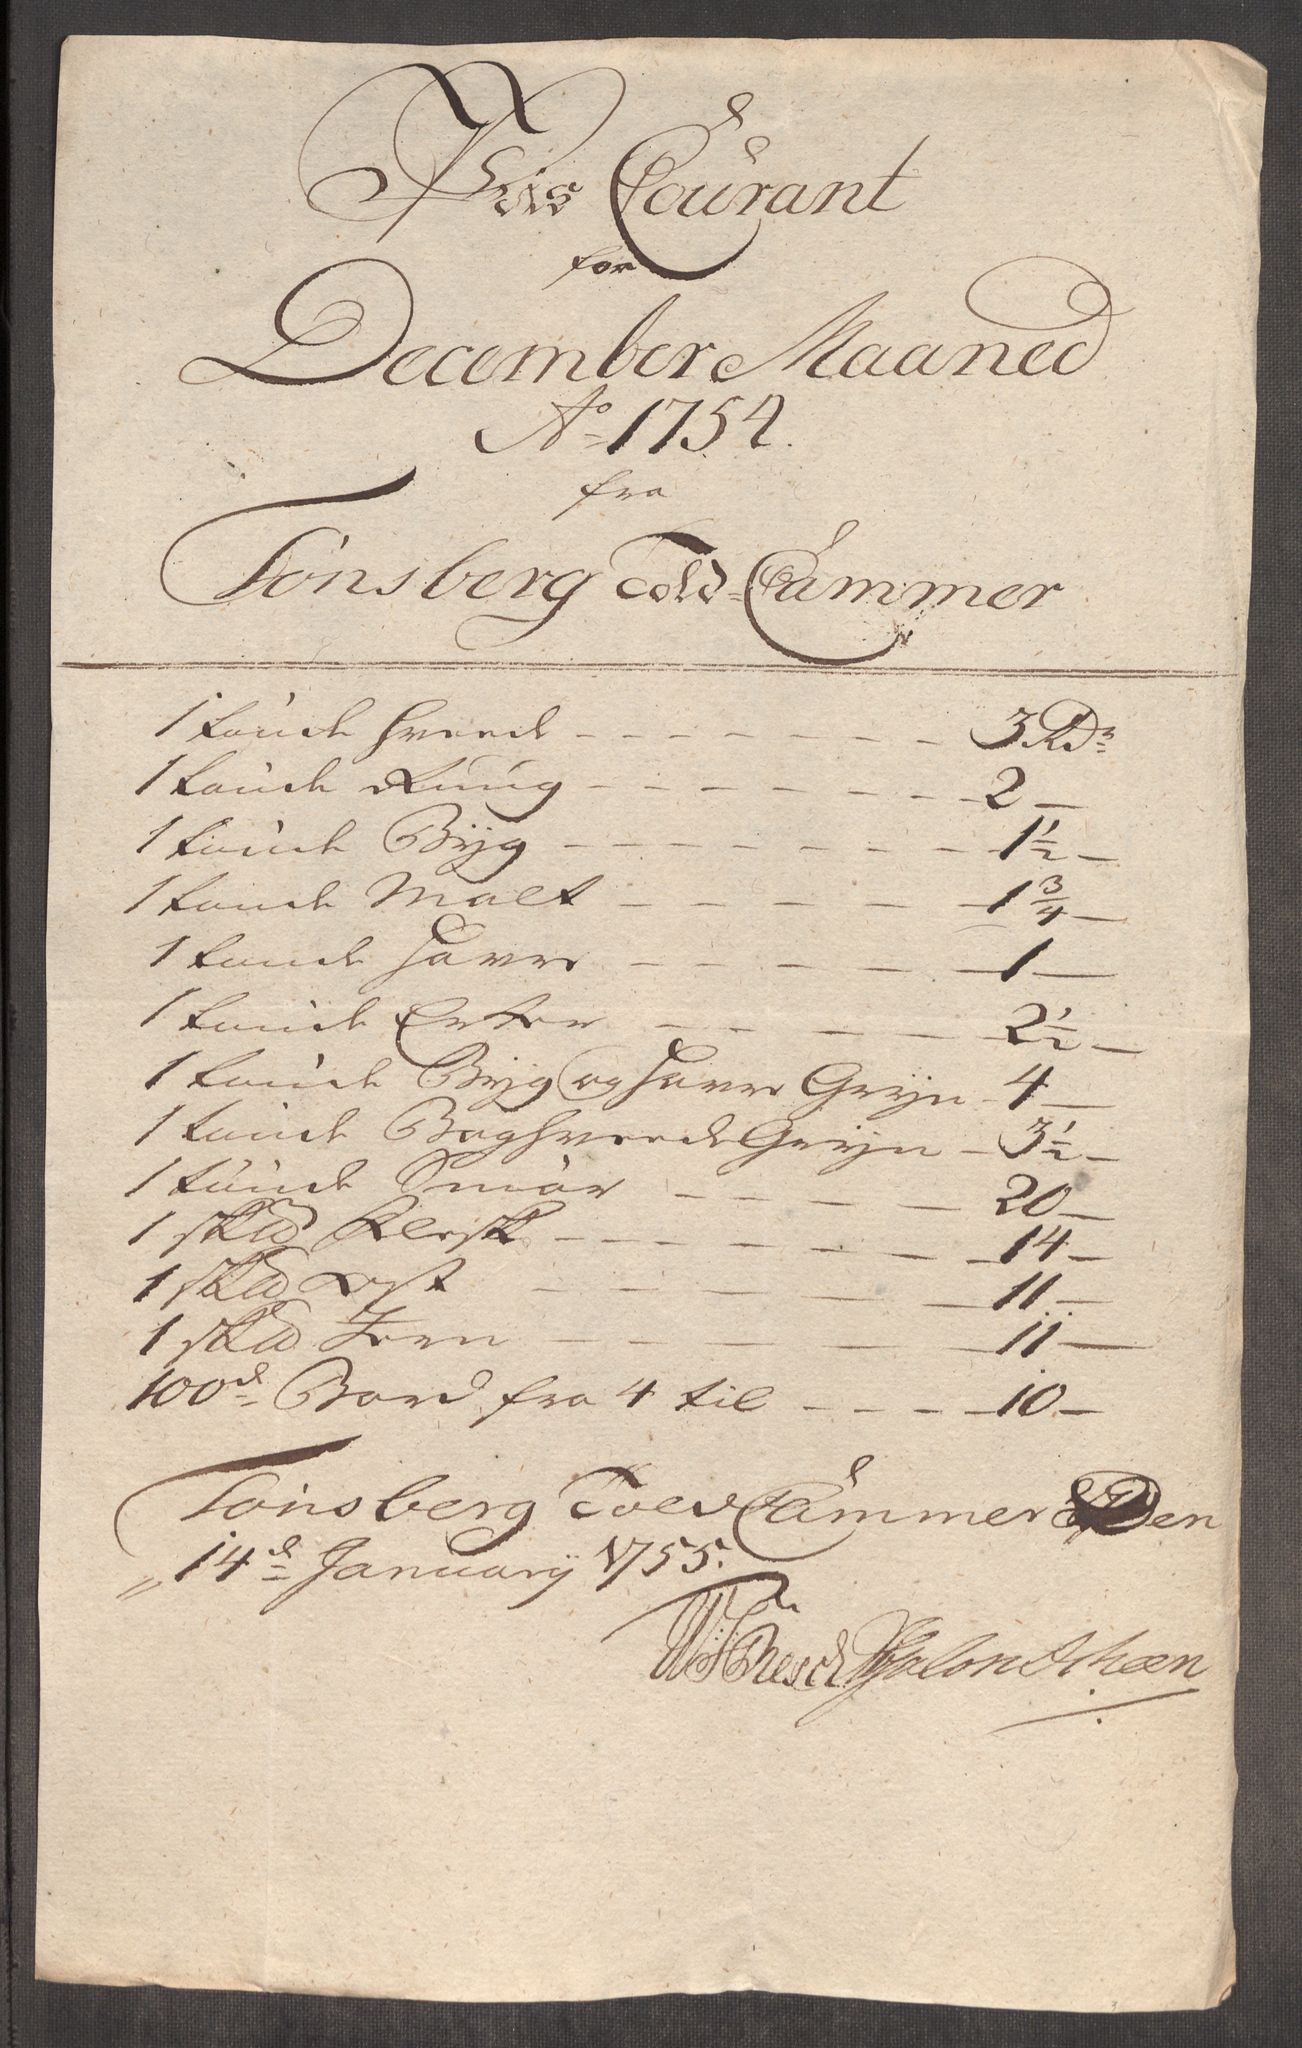 Priis Courant
for
December Maaned
Ao 1754.
fra
Tønsberg Told-Cammer
1 tønde Hveede 3 Rdr
1 tønde Rúúg 2
1 tønde Bÿg 1 1/2
1 tønde Malt 1 3/4
1 tønde Havre 1
1 tønde Erter 2 1/2
1 tønde Bÿg og Havre Grÿn 4
1 tønde Boghveede Grÿn 3 1/2
1 tønde Smør 20
1 sk℔d Flesk 14
1 sk℔d Ost 11
1 sk℔d Jern 11
100d Bord fra 4 til 10
Tønsberg Told Cammer Den
14d Januarÿ 1755.